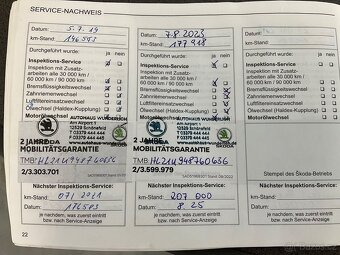 SERVICE-NACHWEIS
Datum: 5.7.19
km-Stand: 146 593
Durchgeführt wurde: ja nein
Inspektions-Service:
Inspektion mit Zusatz-
arbeiten alle 30 000 km /
60 000 km / 90 000 km:
Bremsflüssigkeitswechsel
Zahnriemenwechsel
Luftfiltereinsatzwechsel
Ölwechsel (Haldex-Kupplung)
Motorölwechsel
AUTOHAUS WUNDERLICH
Am Airport 1
12529 Schönefeld
ŠKODA
2 JAHRE
MOBILITÄTSGARANTIE
2/3.303.701
Nächster Inspektions-Service:
km-Stand: 07/2021
Datum: 176593
je nachdem, was zuerst eintrifft
bzw. nach Service-Anzeige
22
Datum: 7.8.2023
km-Stand: 177 918
Durchgeführt wurde: ja nein
Inspektions-Service:
Inspektion mit Zusatz-
arbeiten alle 30 000 km /
60 000 km / 90 000 km:
Bremsflüssigkeitswechsel
Zahnriemenwechsel
Luftfiltereinsatzwechsel
Ölwechsel (Haldex-Kupplung)
Motorölwechsel
12529 Schönefeld
ŠKODA
2 JAHRE
MOBILITÄTSGARANTIE
2/3.599.979
Nächster Inspektions-Service:
km-Stand: 207 000
Datum: 8.25
je nachdem, was zuerst eintrifft
bzw. nach Service-Anzeige
Datum:
km-Stand:
Durchgeführt wurde: ja nein
Inspektions-Service:
Inspektion mit Zusatz-
arbeiten alle 30 000 km /
60 000 km / 90 000 km:
Bremsflüssigkeitswechsel
Zahnriemenwechsel
Luftfiltereinsatzwechsel
Ölwechsel (Haldex-Kupplung)
Motorölwechsel
Stempel des Škoda-Betriebes
Nächster Inspektions-Service:
km-Stand:
Datum:
je nachdem, was zuerst eintrifft
bzw. nach Service-Anzeige